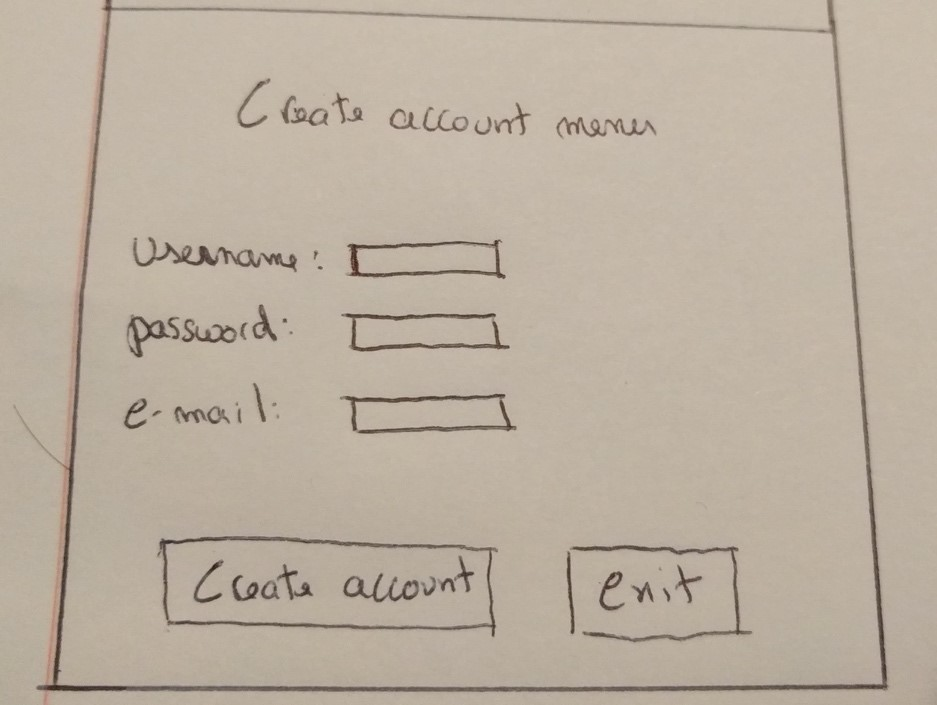 Create account menu
Username:
password:
e-mail:
Create account
exit